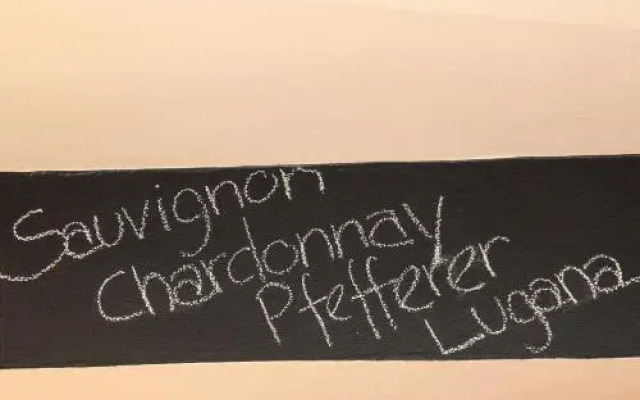 Sauvignon
Chardonnay
Pfefferer
Lugana